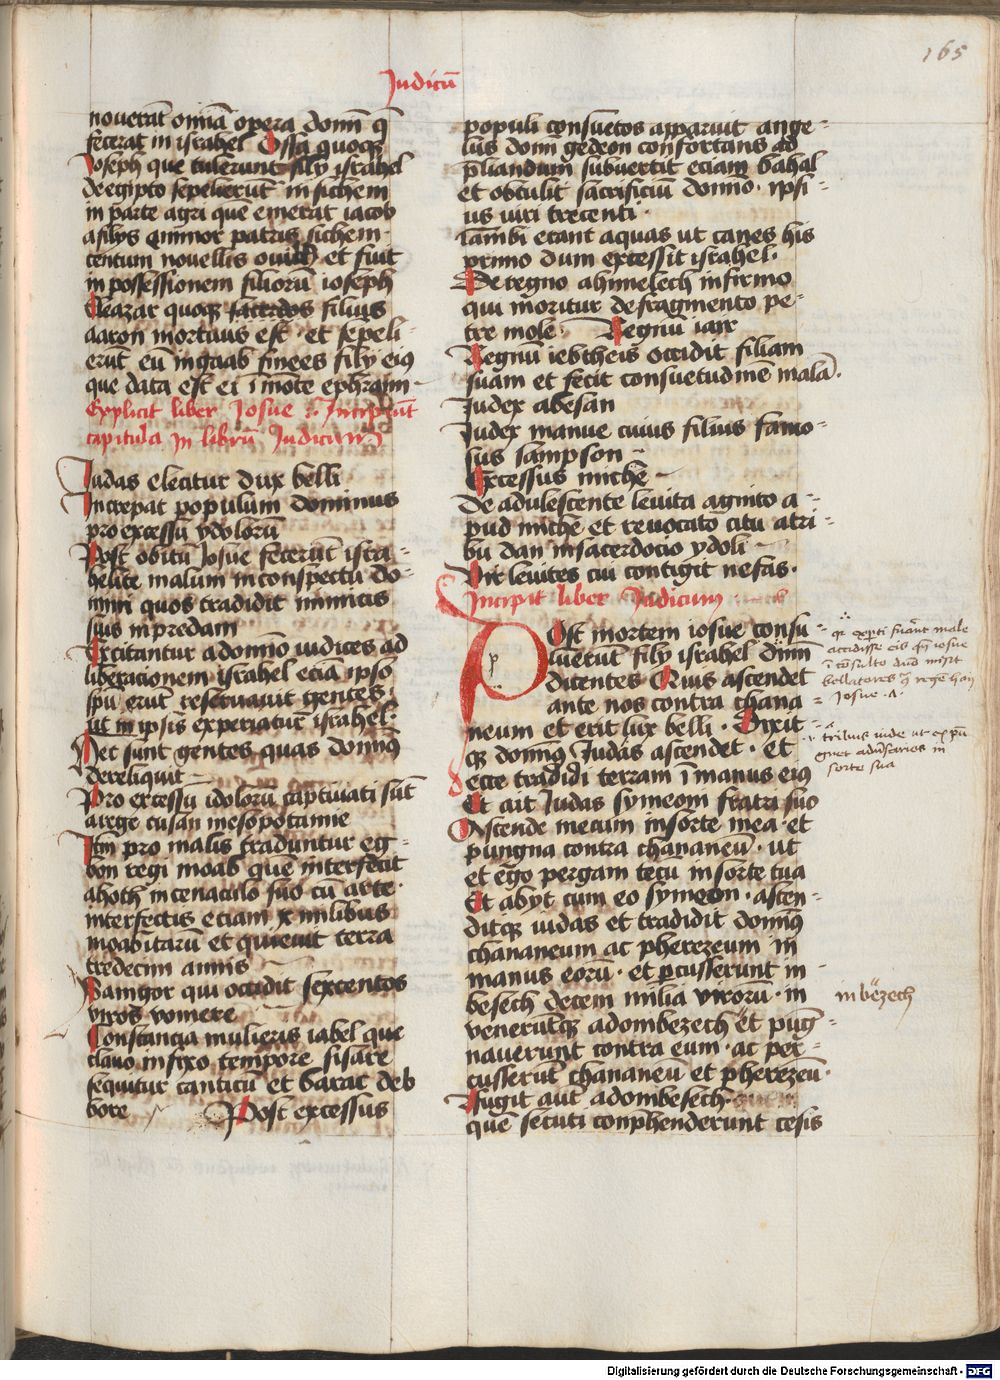 165
Judicū
noverāt omīa opera domī q̄
fecerat in israhel Ossa quoqꝫ
Joseph que tulerunt filij israhel
de egipto sepelierūt in sichem
in parte agri quē emerat iacob
a filijs emmor patris sichem
centum novellis ovibꝫ et fuit
in possessionem filiorū ioseph
Eleazar quoqꝫ sacerdos filius
aaron mortuus est · et sepeli-
erūt eū in gaab finees filij eiꝰ
que data est ei ī mōte ephraim
Explicit liber Josue · Incipiūt
capitula in librū Judicum
Judas eleccitur dux belli
Increpat populum dominus
pro excessu ydolorū
Post obitū Josue fecerūt isra-
helite malum in conspectu do-
mini quos tradidit inimicis
suis in predam
Excitantur a domīo iudices ad
liberacionem israhel eciā ipsoꝝ
erūt reservavit gentes
ut in ipsis experiatur israhel
Hec sunt gentes quas domnꝰ
dereliquit
Pro excessu idolorū captivati sūt
a rege cusan mesopotamie
Itm̄ pro malis traduntur eg-
lon regi moab quē interfecit
ahoth in cenaculo suo cū arte ·
interfectis eciam x milibus
moabitarū et quievit terra
tredecim annis
Samgor qui occidit sexcentos
viros vomere
Constancia mulieris iabel que
clavo infixo tempore sisare
sequitur canticū et barac deb
bore Post excessus
populi consuetos apparuit ange-
lus domī gedeon confortans ad
p̄liandum subvertit eciam bahal
et obtulit sacrificiū domīo · ipsi-
us viri trecenti ·
lambētant aquas ut canes his
primo dum excessit israhel ·
De regno ahimelech infirmo
qui moritur de fragmento pe-
tre mole Regnū iair
Regnū iebtheis occidit filiam
suam et fecit consuetudinē malā ·
Judex abesan
Judex manue cuius filius famo-
sus sampson
Excessus miche
De adulescente levita agnito a-
pud miche et revocato citu a tri-
bu dan in sacerdocio ydoli
Vir levites cui contigit nefas ·
Incipit liber Judicum
POst mortem iosue consu-
luerūt filij israhel dn̄m
dicentes Quis ascendet
ante nos contra chana-
neum et erit lux belli · Dixit-
qꝫ domnꝰ Judas ascendet · et
ecce tradidi terram ī manus eiꝰ
Et ait Judas symeoni fratri suo
Ascende mecum in sorte mea · et
pungna contra chananeū · ut
et ego pergam tecū in sorte tua
Et abijt cum eo symeon · ascen-
ditqꝫ iudas et tradidit domnꝰ
chananeum ac pherezeum in
manus eorū · et p̄cusserunt in
besech decem milia virorū · in
venerūtqꝫ adombezech et pug-
naverunt contra eum · ac per-
cusserūt chananeū et pherezeū ·
Fugit aut̄ adombesech
quē secuti conphenderunt cesis
qr experti fuāt male
accidisse eis
bellatores
Josue
tribus inde ut expu
gnet adūsarios in
sorte sua
in bezech
Digitalisierung gefördert durch die Deutsche Forschungsgemeinschaft - DFG